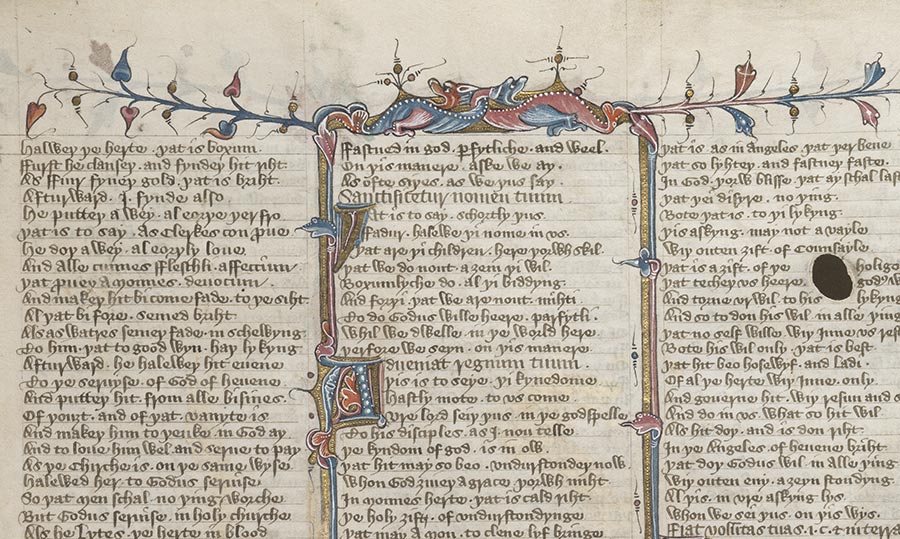 Halweþ þe herte . þat is boxum.
Ffurst he clanseþ . and fyndeþ hit riht.
As ffuir fyneþ gold . þat is briht.
Afturward . I . fynde also
He putteþ a wey . al eorþe þerfro
Þat is to say . As Clerkes con prue.
He doþ a wey . al eorþly loue
And alle cumes fflesschli . affeccium
Þat . deuocium.
And makeþ hit bi come fade . to þe siht
Al þat bi fore . semed briht.
Als as watres semeþ fade . in schelwyng
To him . þat to good wyn . haþ lykyng
Afturward . he haleweþ hit euene
To þe seruyse . of God of heuene
And putteþ hit . from alle bisines.
Of þouȝt . and of þat vanyte is
And makeþ him to þenke . in God ay
And to loue him wel . and serue to pay
As þe chirche is . on þe same wyse.
Halewed her . to Godus seruise
So þat men schal . no þing worche
But Godus seruise . in holy churche
As he . þe herte in blood
Ffastned in god . perfytliche . and weel.
On þis manere . aske we ay.
As ofte siþes . as we þus say.
Sanctificetur nomen tuum
Þat is to say . schortly þus.
Ffadur . halewe þi nome in vs.
Þat are þi children . here þorwh skil.
Þat we do nouȝt . aȝeyn þi wil.
Boxumlyche do . al þi biddyng
And forþi þat we are nouȝt . mihti
To do Godus wille heere . parfytli.
Whil we dwelle . in þe world here.
Þerfore we seyn . on þis manere
Adueniat regnum tuum.
Þis is to seye . þi kynedome
Hastly mote . to vs come
Vre lord seiþ þus . in þe godspelle
To his disciples . as I . nou telle
Þe kyndom of god . is in ow.
Þat hit may so beo . vndurstondeþ now
Whon God ȝiueþ a grace . þorwh miht
In monnes herte . þat is cald riht
Þe holy ȝift . of vndurstondynge
Þat may a mon . to clene lyf bringe
Þat is . as in Angeles . þat þer bene
Þat so lyhteþ . and fastneþ faste.
In God . þorw blisse . þat ay schal last
Þat þei disyre . no þing.
Bote þat is . to þi lykyng
Þis askyng . may not a vayle
Wiþ outen ȝift . of Counsayle
Þat is a ȝift . of þe holigo
Þat techeþ vs heere . god w
And torne vr wil . to his lykyng
And so to don his wil . in alle þing
Þat no self wille . wiþ inne vs rest
Bote his wil only . þat is best
Þat hit beo hosewyf . and Ladi .
Of al þe herte wiþ inne . only.
And gouerne hit . wiþ resun and s
And do in vs . what so hit wil.
Als hit doþ . and is don riht
In þe Angeles . of heuene briht
Þat doþ Godus wil . in alle þing
Wiþ outen eny . aȝeyn stondyng.
Al þis . in vre askyng lys.
Whon we sei þus . on þis wys.
Ffiat voluntas tua s . i . c . & in terra